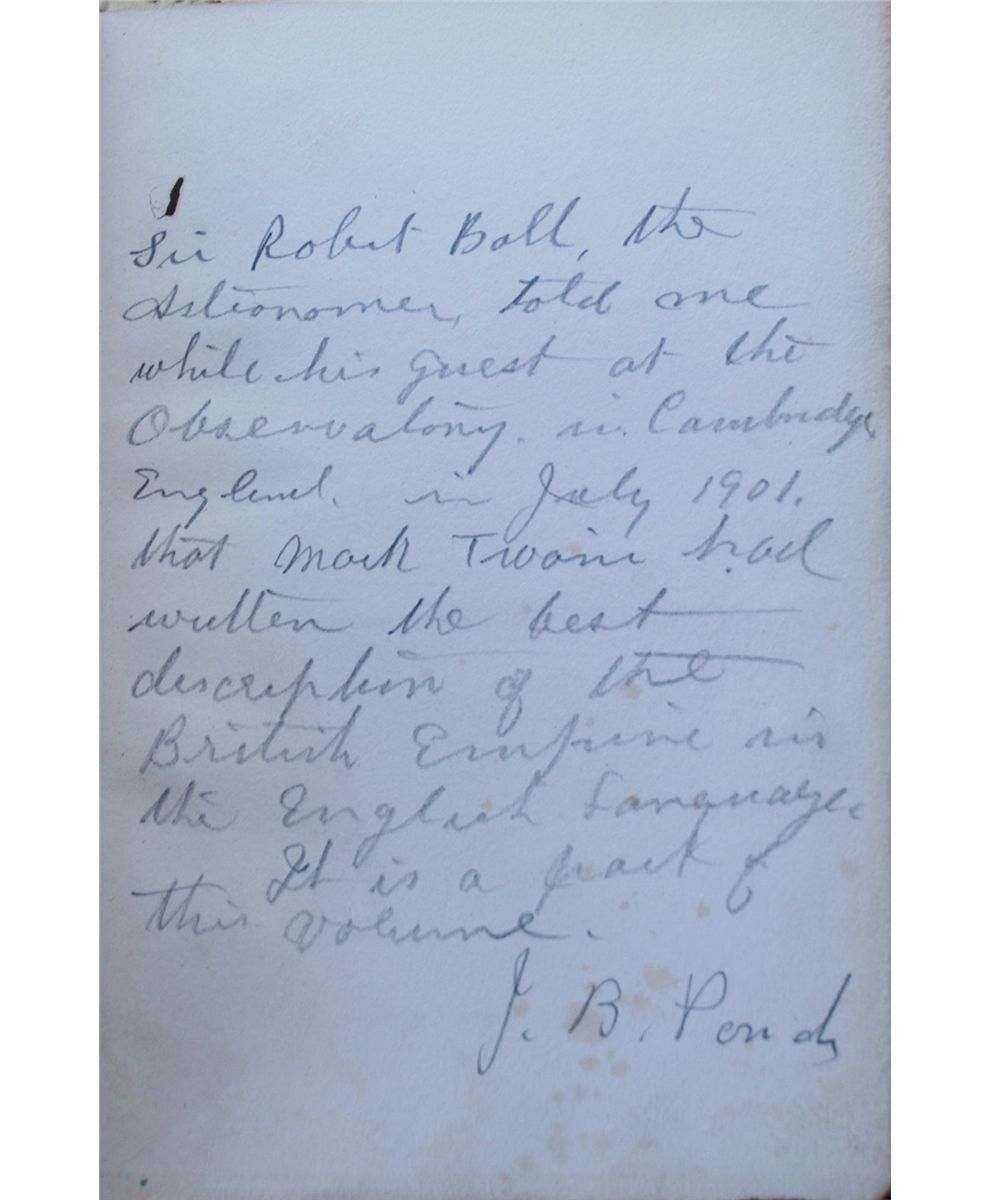 Sir Robert Ball, the
Astronomer, told me
while his guest at the
Observatory. in Cambridge
England. in July 1901.
that Mark Twain had
written the best
description of the
British Empire in
the English Language.
It is a part of
this volume.
J. B. Pond